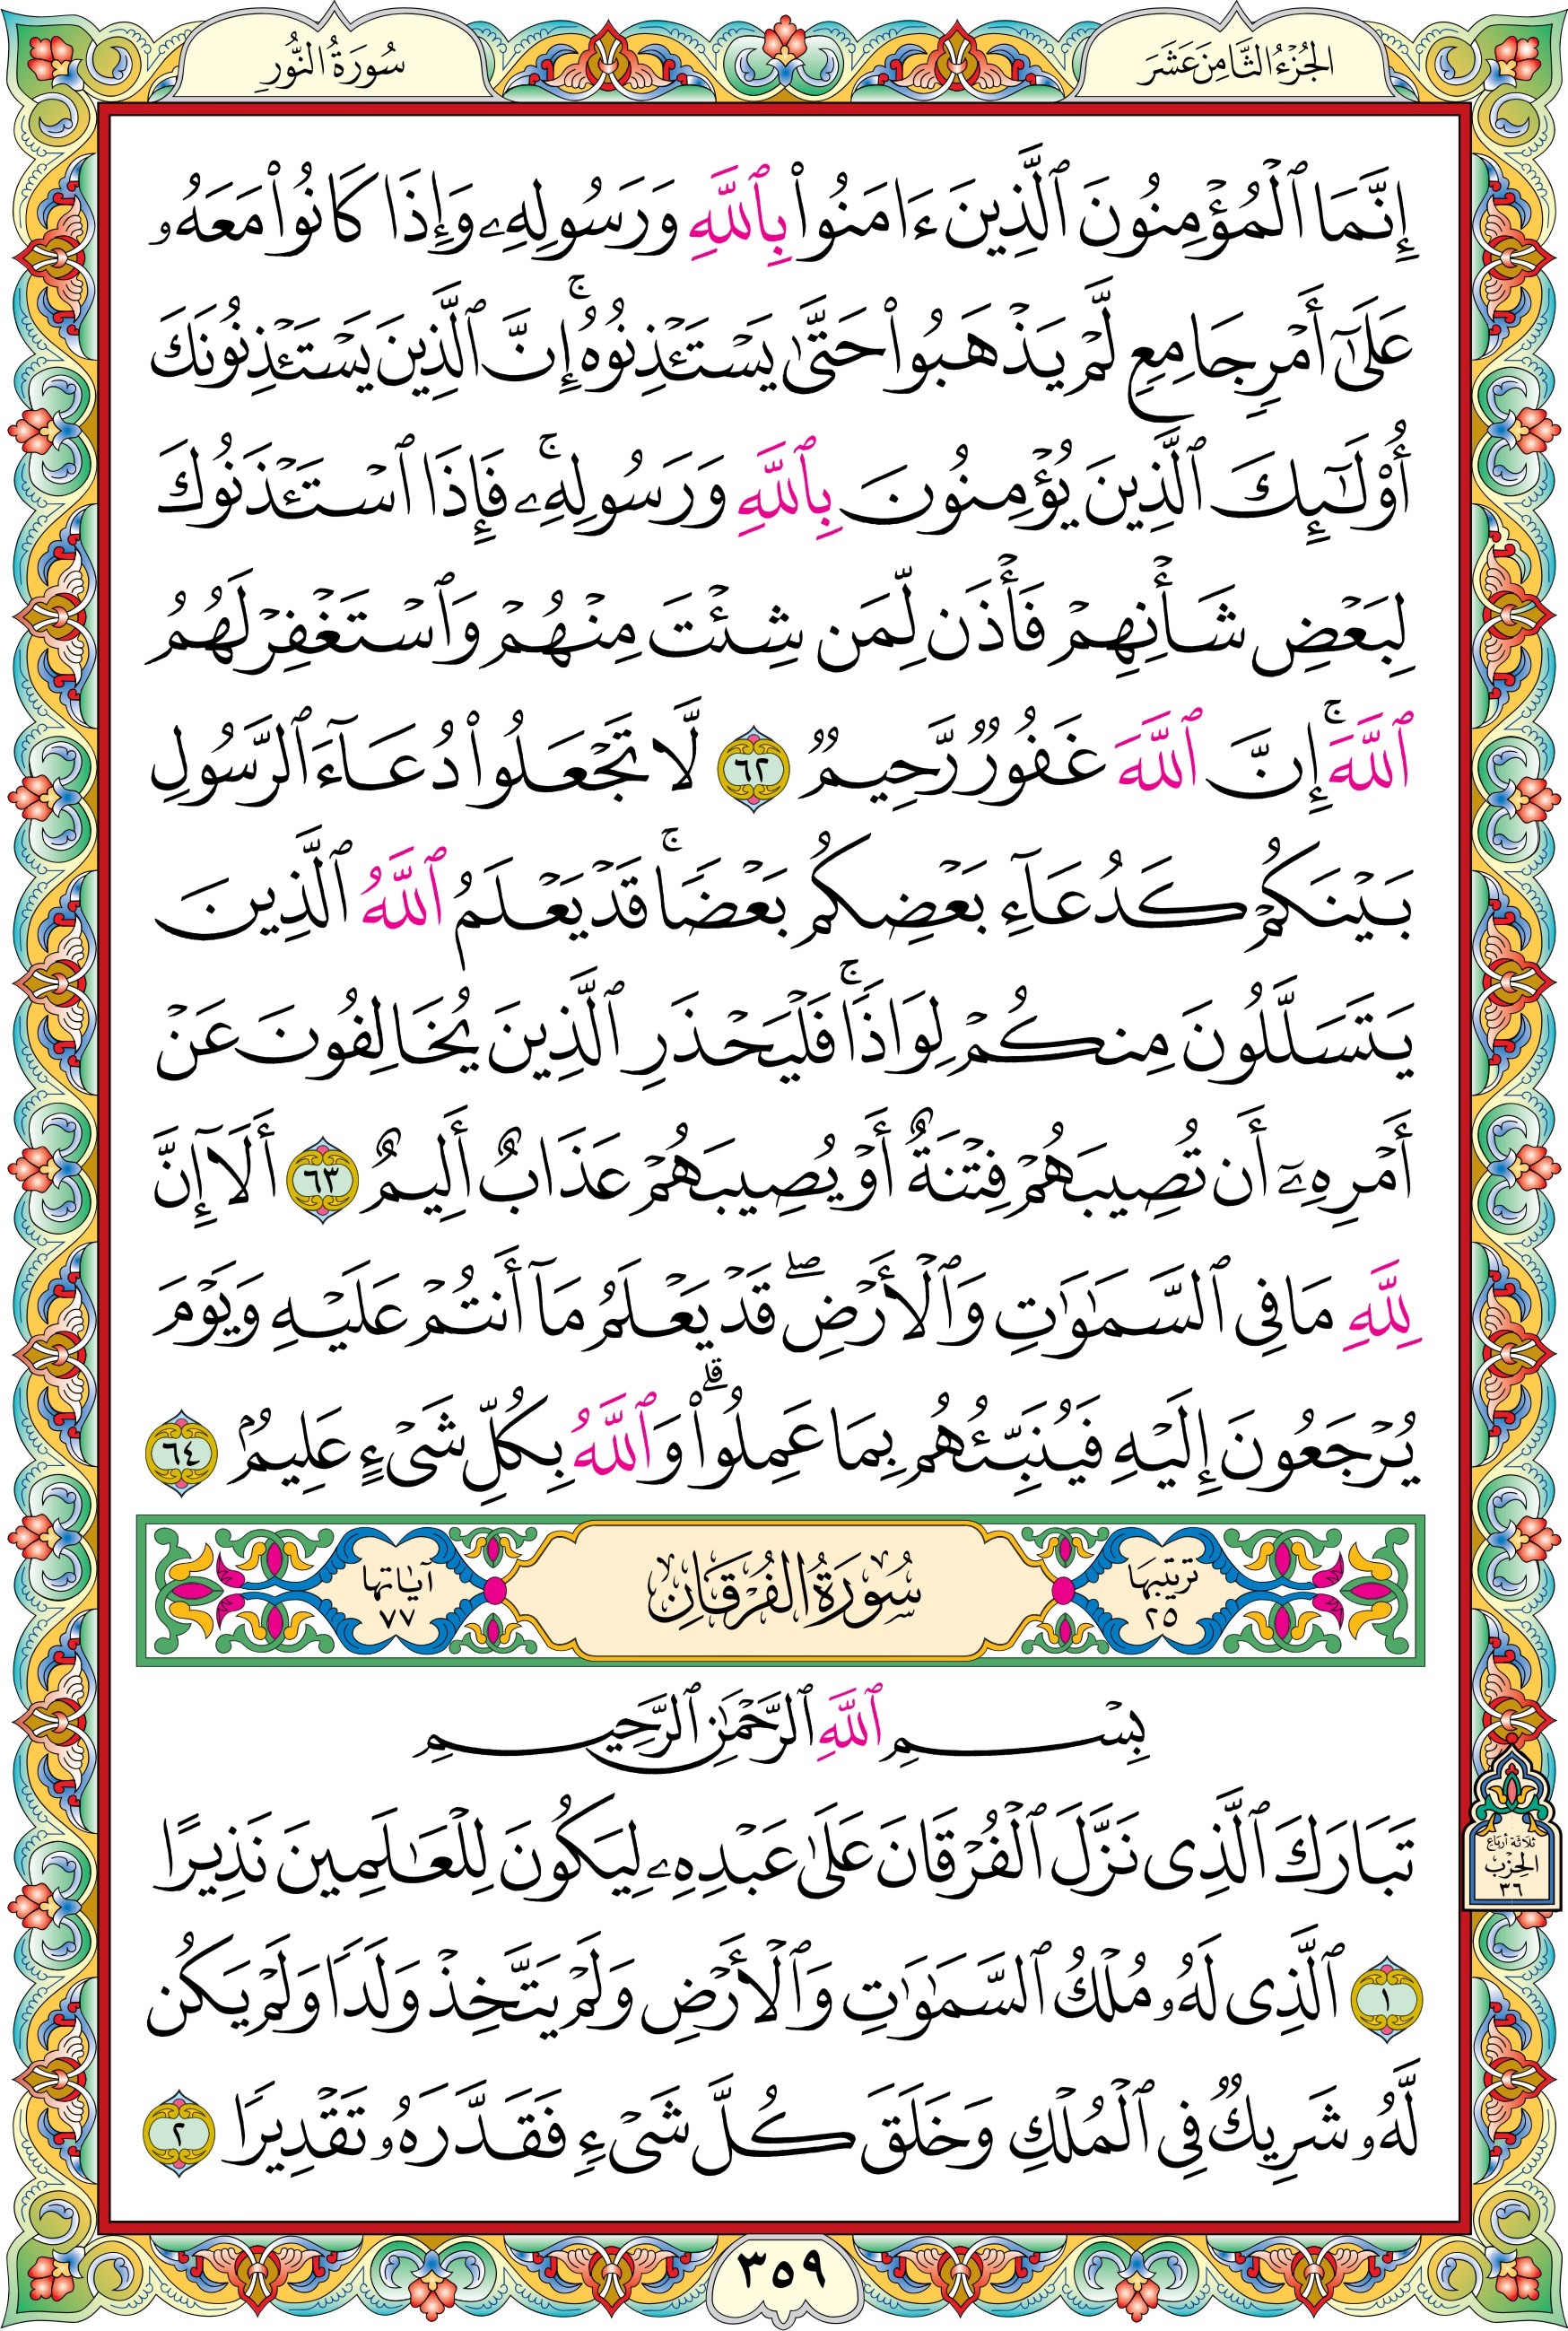 الجُزْءُ الثَّامِنَ عَشَرَ
سُورَةُ النُّورِ
إِنَّمَا ٱلْمُؤْمِنُونَ ٱلَّذِينَ ءَامَنُوا۟ بِٱللَّهِ وَرَسُولِهِۦ وَإِذَا كَانُوا۟ مَعَهُۥ
عَلَىٰٓ أَمْرٍ جَامِعٍ لَّمْ يَذْهَبُوا۟ حَتَّىٰ يَسْتَـْٔذِنُوهُ ۚ إِنَّ ٱلَّذِينَ يَسْتَـْٔذِنُونَكَ
أُو۟لَـٰٓئِكَ ٱلَّذِينَ يُؤْمِنُونَ بِٱللَّهِ وَرَسُولِهِۦ ۚ فَإِذَا ٱسْتَـْٔذَنُوكَ
لِبَعْضِ شَأْنِهِمْ فَأْذَن لِّمَن شِئْتَ مِنْهُمْ وَٱسْتَغْفِرْ لَهُمُ
ٱللَّهَ ۚ إِنَّ ٱللَّهَ غَفُورٌ رَّحِيمٌ ٦٢ لَّا تَجْعَلُوا۟ دُعَآءَ ٱلرَّسُولِ
بَيْنَكُمْ كَدُعَآءِ بَعْضِكُم بَعْضًا ۚ قَدْ يَعْلَمُ ٱللَّهُ ٱلَّذِينَ
يَتَسَلَّلُونَ مِنكُمْ لِوَاذًا ۚ فَلْيَحْذَرِ ٱلَّذِينَ يُخَالِفُونَ عَنْ
أَمْرِهِۦٓ أَن تُصِيبَهُمْ فِتْنَةٌ أَوْ يُصِيبَهُمْ عَذَابٌ أَلِيمٌ ٦٣ أَلَآ إِنَّ
لِلَّهِ مَا فِى ٱلسَّمَـٰوَٰتِ وَٱلْأَرْضِ ۖ قَدْ يَعْلَمُ مَآ أَنتُمْ عَلَيْهِ وَيَوْمَ
يُرْجَعُونَ إِلَيْهِ فَيُنَبِّئُهُم بِمَا عَمِلُوا۟ ۗ وَٱللَّهُ بِكُلِّ شَىْءٍ عَلِيمٌۢ ٦٤
ترتيبها ٢٥
سُورَةُ الفُرْقَانِ
آياتها ٧٧
بِسْمِ ٱللَّهِ ٱلرَّحْمَـٰنِ ٱلرَّحِيمِ
تَبَارَكَ ٱلَّذِى نَزَّلَ ٱلْفُرْقَانَ عَلَىٰ عَبْدِهِۦ لِيَكُونَ لِلْعَـٰلَمِينَ نَذِيرًا
١ ٱلَّذِى لَهُۥ مُلْكُ ٱلسَّمَـٰوَٰتِ وَٱلْأَرْضِ وَلَمْ يَتَّخِذْ وَلَدًا وَلَمْ يَكُن
لَّهُۥ شَرِيكٌ فِى ٱلْمُلْكِ وَخَلَقَ كُلَّ شَىْءٍ فَقَدَّرَهُۥ تَقْدِيرًا ٢
ثلاثة أرباع
الحزب
٣٦
٣٥٩